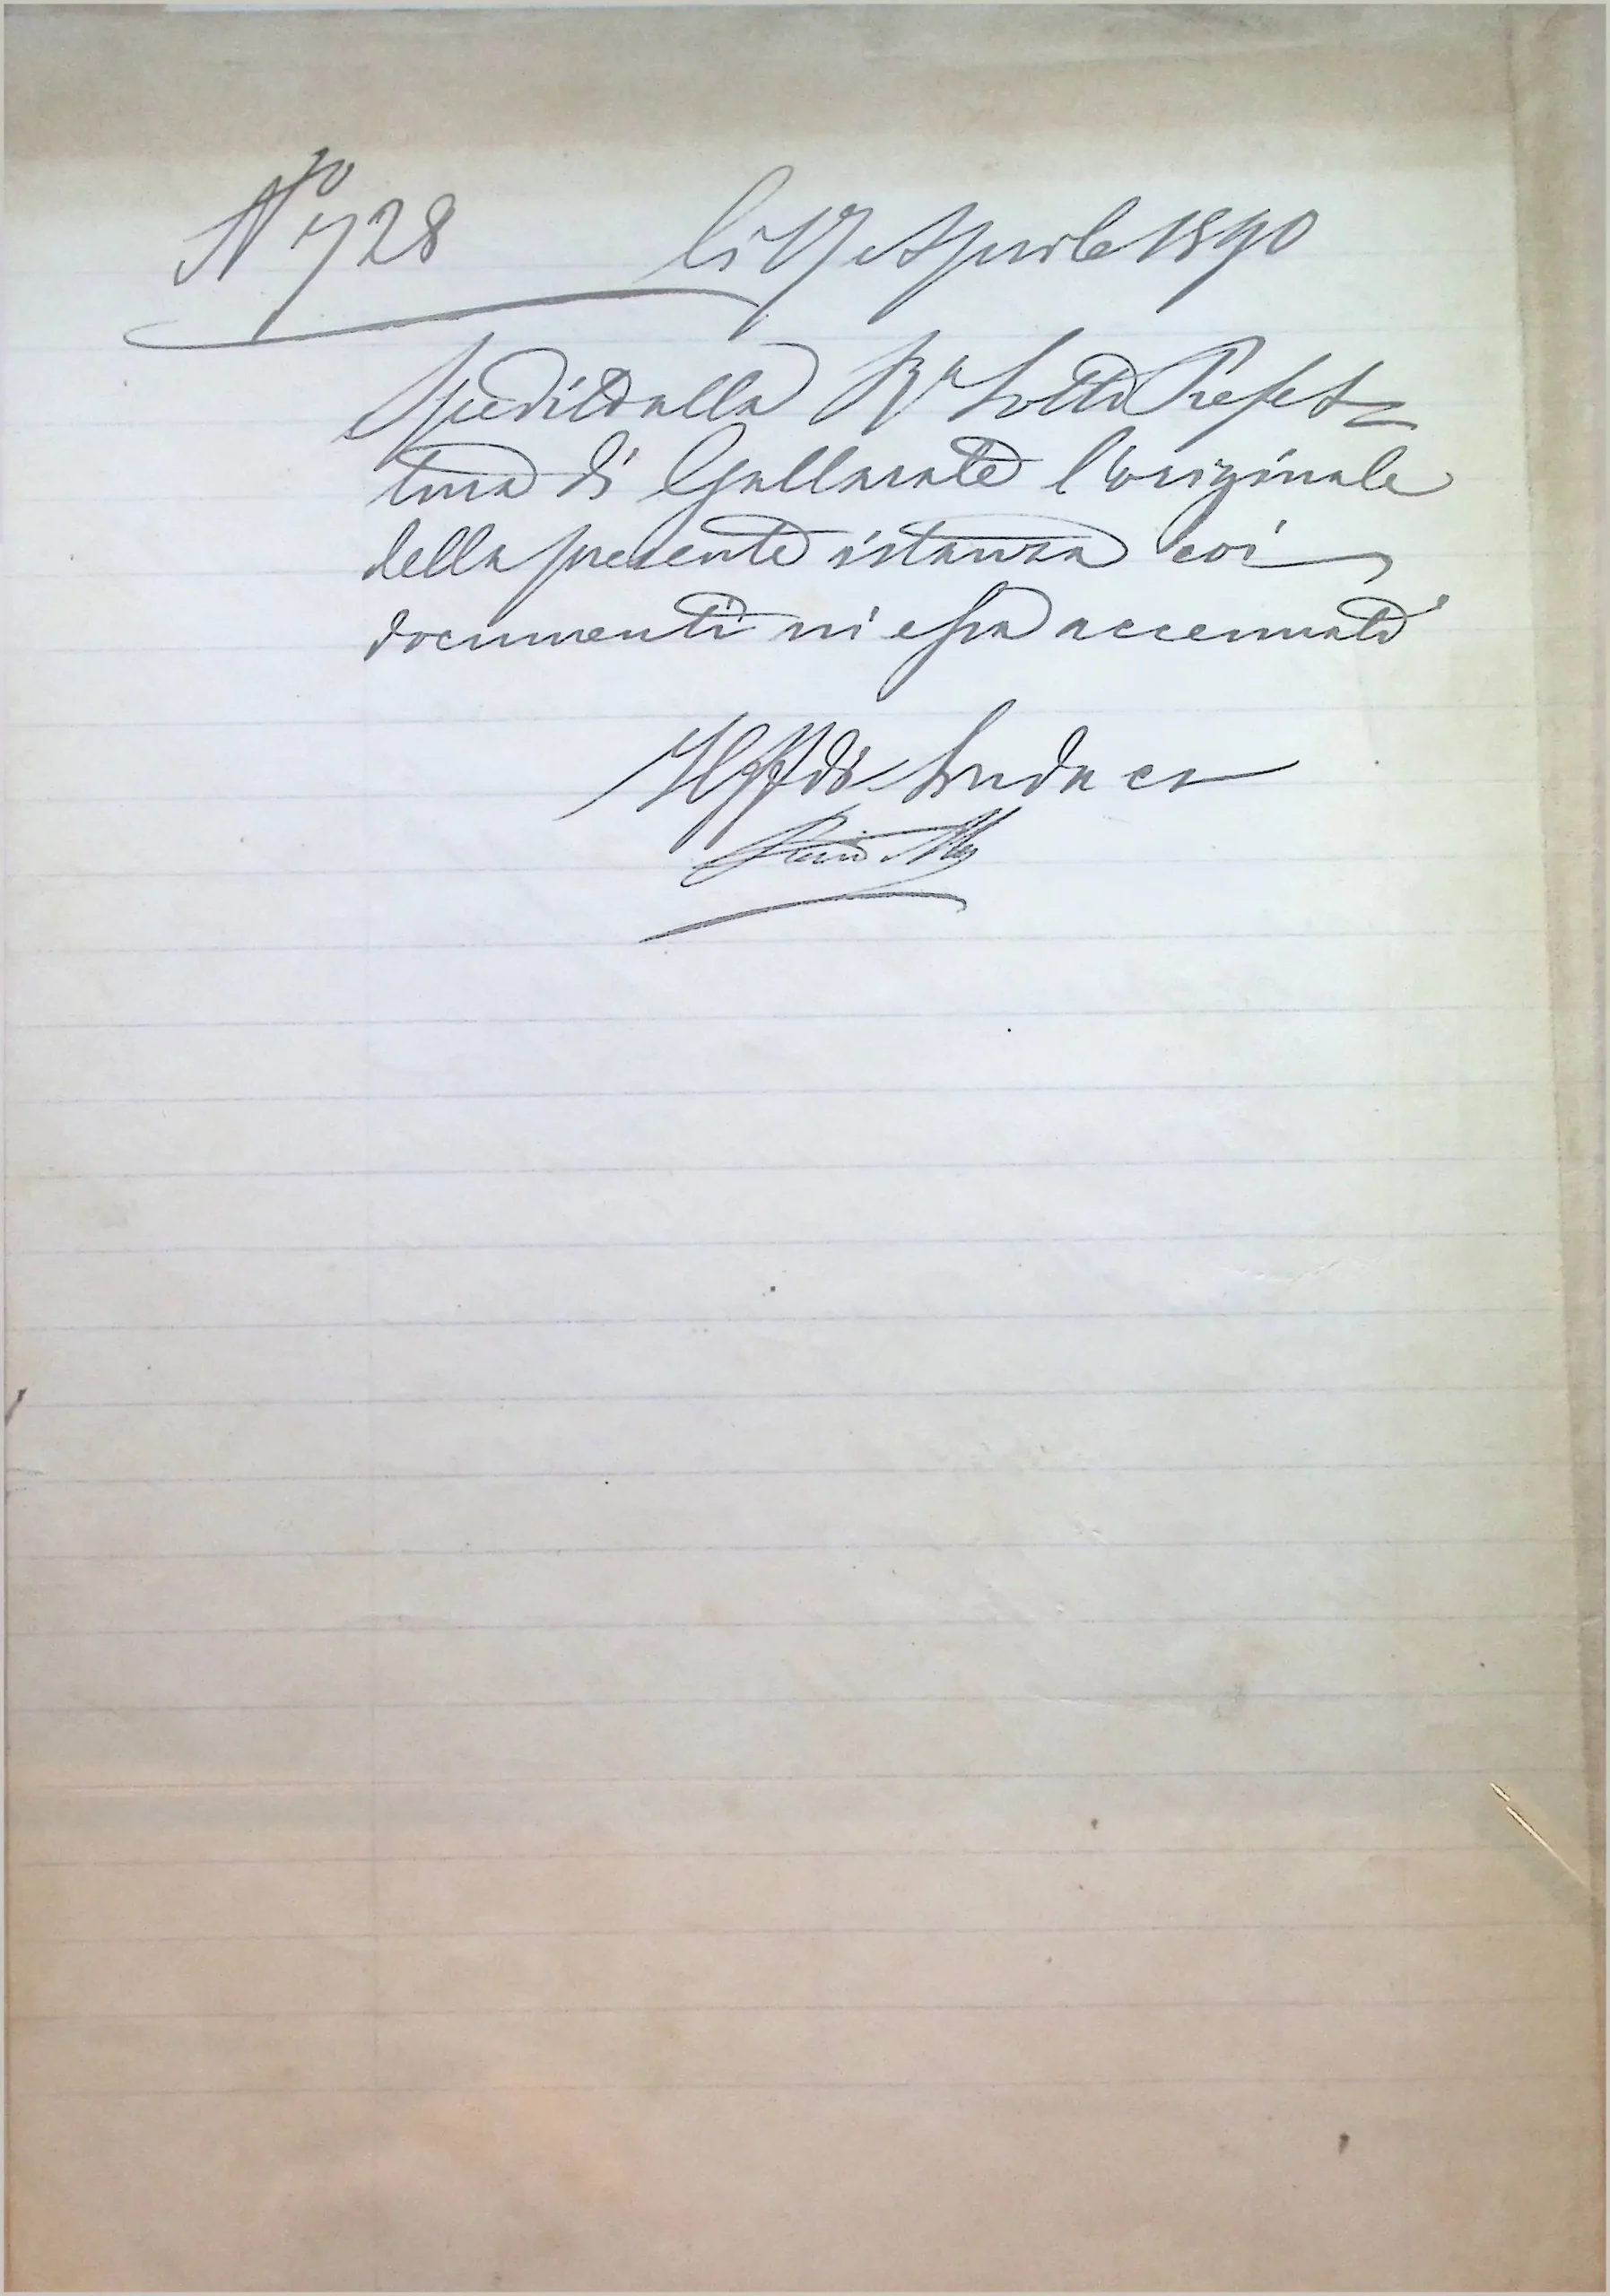 No 728 li 17 Aprile 1890
Spedito alla Ra Sotto Prefet=
tura di Gallarate l'originale
della presente istanza coi
documenti in essa accennati
Il ff di Sindaco